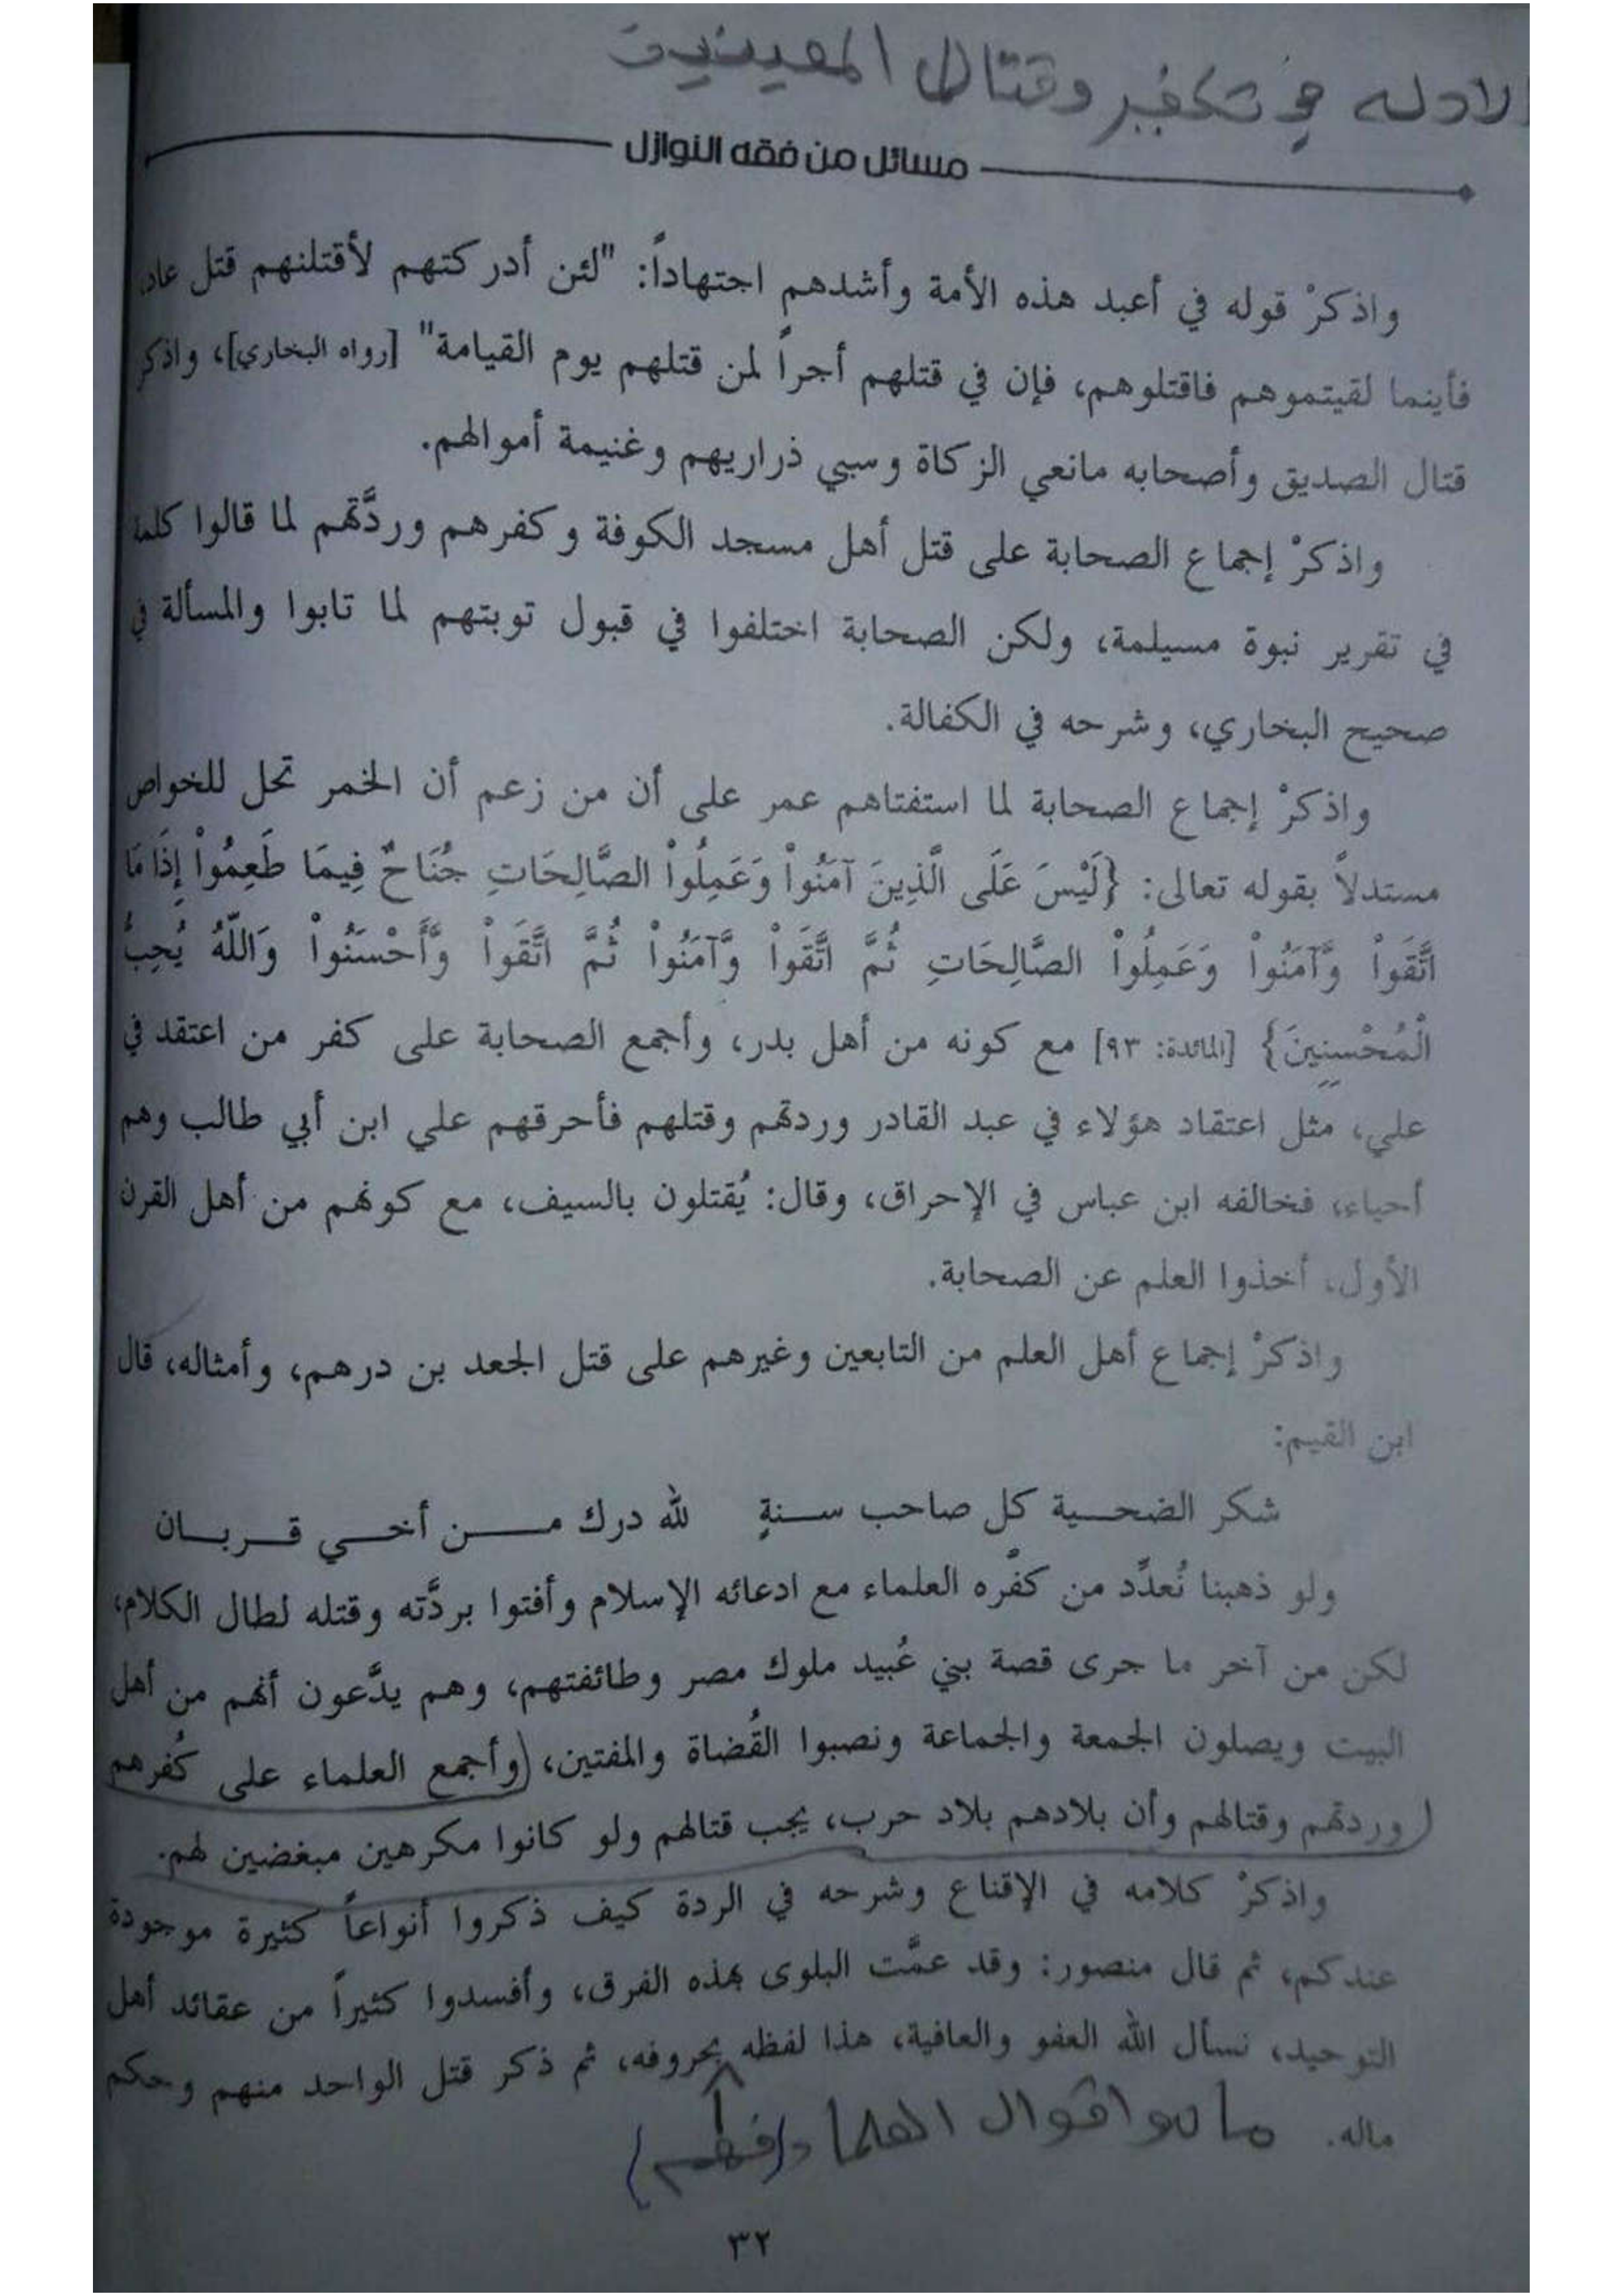 الادله في تكفير وقتال المعينين
مسائل من فقه النوازل
واذكرْ قوله في أعبد هذه الأمة وأشدهم اجتهاداً: "لئن أدركتهم لأقتلنهم قتل عاد،
فأينما لقيتموهم فاقتلوهم، فإن في قتلهم أجراً لمن قتلهم يوم القيامة" [رواه البخاري]، واذكر
قتال الصديق وأصحابه مانعي الزكاة وسبي ذراريهم وغنيمة أموالهم.
واذكرْ إجماع الصحابة على قتل أهل مسجد الكوفة وكفرهم وردَّتهم لما قالوا كلمة
في تقرير نبوة مسيلمة، ولكن الصحابة اختلفوا في قبول توبتهم لما تابوا والمسألة في
صحيح البخاري، وشرحه في الكفالة.
واذكرْ إجماع الصحابة لما استفتاهم عمر على أن من زعم أن الخمر تحل للخواص
مستدلاً بقوله تعالى: {لَيْسَ عَلَى الَّذِينَ آمَنُواْ وَعَمِلُواْ الصَّالِحَاتِ جُنَاحٌ فِيمَا طَعِمُواْ إِذَا مَا
اتَّقَواْ وَّآمَنُواْ وَعَمِلُواْ الصَّالِحَاتِ ثُمَّ اتَّقَواْ وَّآمَنُواْ ثُمَّ اتَّقَواْ وَّأَحْسَنُواْ وَاللّهُ يُحِبُّ
الْمُحْسِنِينَ} [المائدة: ٩٣] مع كونه من أهل بدر، وأجمع الصحابة على كفر من اعتقد في
علي، مثل اعتقاد هؤلاء في عبد القادر وردتهم وقتلهم فأحرقهم علي ابن أبي طالب وهم
أحياء، فخالفه ابن عباس في الإحراق، وقال: يُقتلون بالسيف، مع كونهم من أهل القرن
الأول، أخذوا العلم عن الصحابة.
واذكرْ إجماع أهل العلم من التابعين وغيرهم على قتل الجعد بن درهم، وأمثاله، قال
ابن القيم:
شكر الضحية كل صاحب سنةٍ لله درك من أخي قربان
ولو ذهبنا نُعدِّد من كفَّره العلماء مع ادعائه الإسلام وأفتوا بردَّته وقتله لطال الكلام،
لكن من آخر ما جرى قصة بني عُبيد ملوك مصر وطائفتهم، وهم يدَّعون أنهم من أهل
البيت ويصلون الجمعة والجماعة ونصبوا القُضاة والمفتين، (وأجمع العلماء على كُفرهم
وردتهم وقتالهم وأن بلادهم بلاد حرب، يجب قتالهم ولو كانوا مكرهين مبغضين لهم.
واذكرْ كلامه في الإقناع وشرحه في الردة كيف ذكروا أنواعاً كثيرة موجودة
عندكم، ثم قال منصور: وقد عمَّت البلوى بهذه الفرق، وأفسدوا كثيراً من عقائد أهل
التوحيد، نسأل الله العفو والعافية، هذا لفظه بحروفه، ثم ذكر قتل الواحد منهم وحكم
ماله.
ما هو اقوال العلما
٣٢